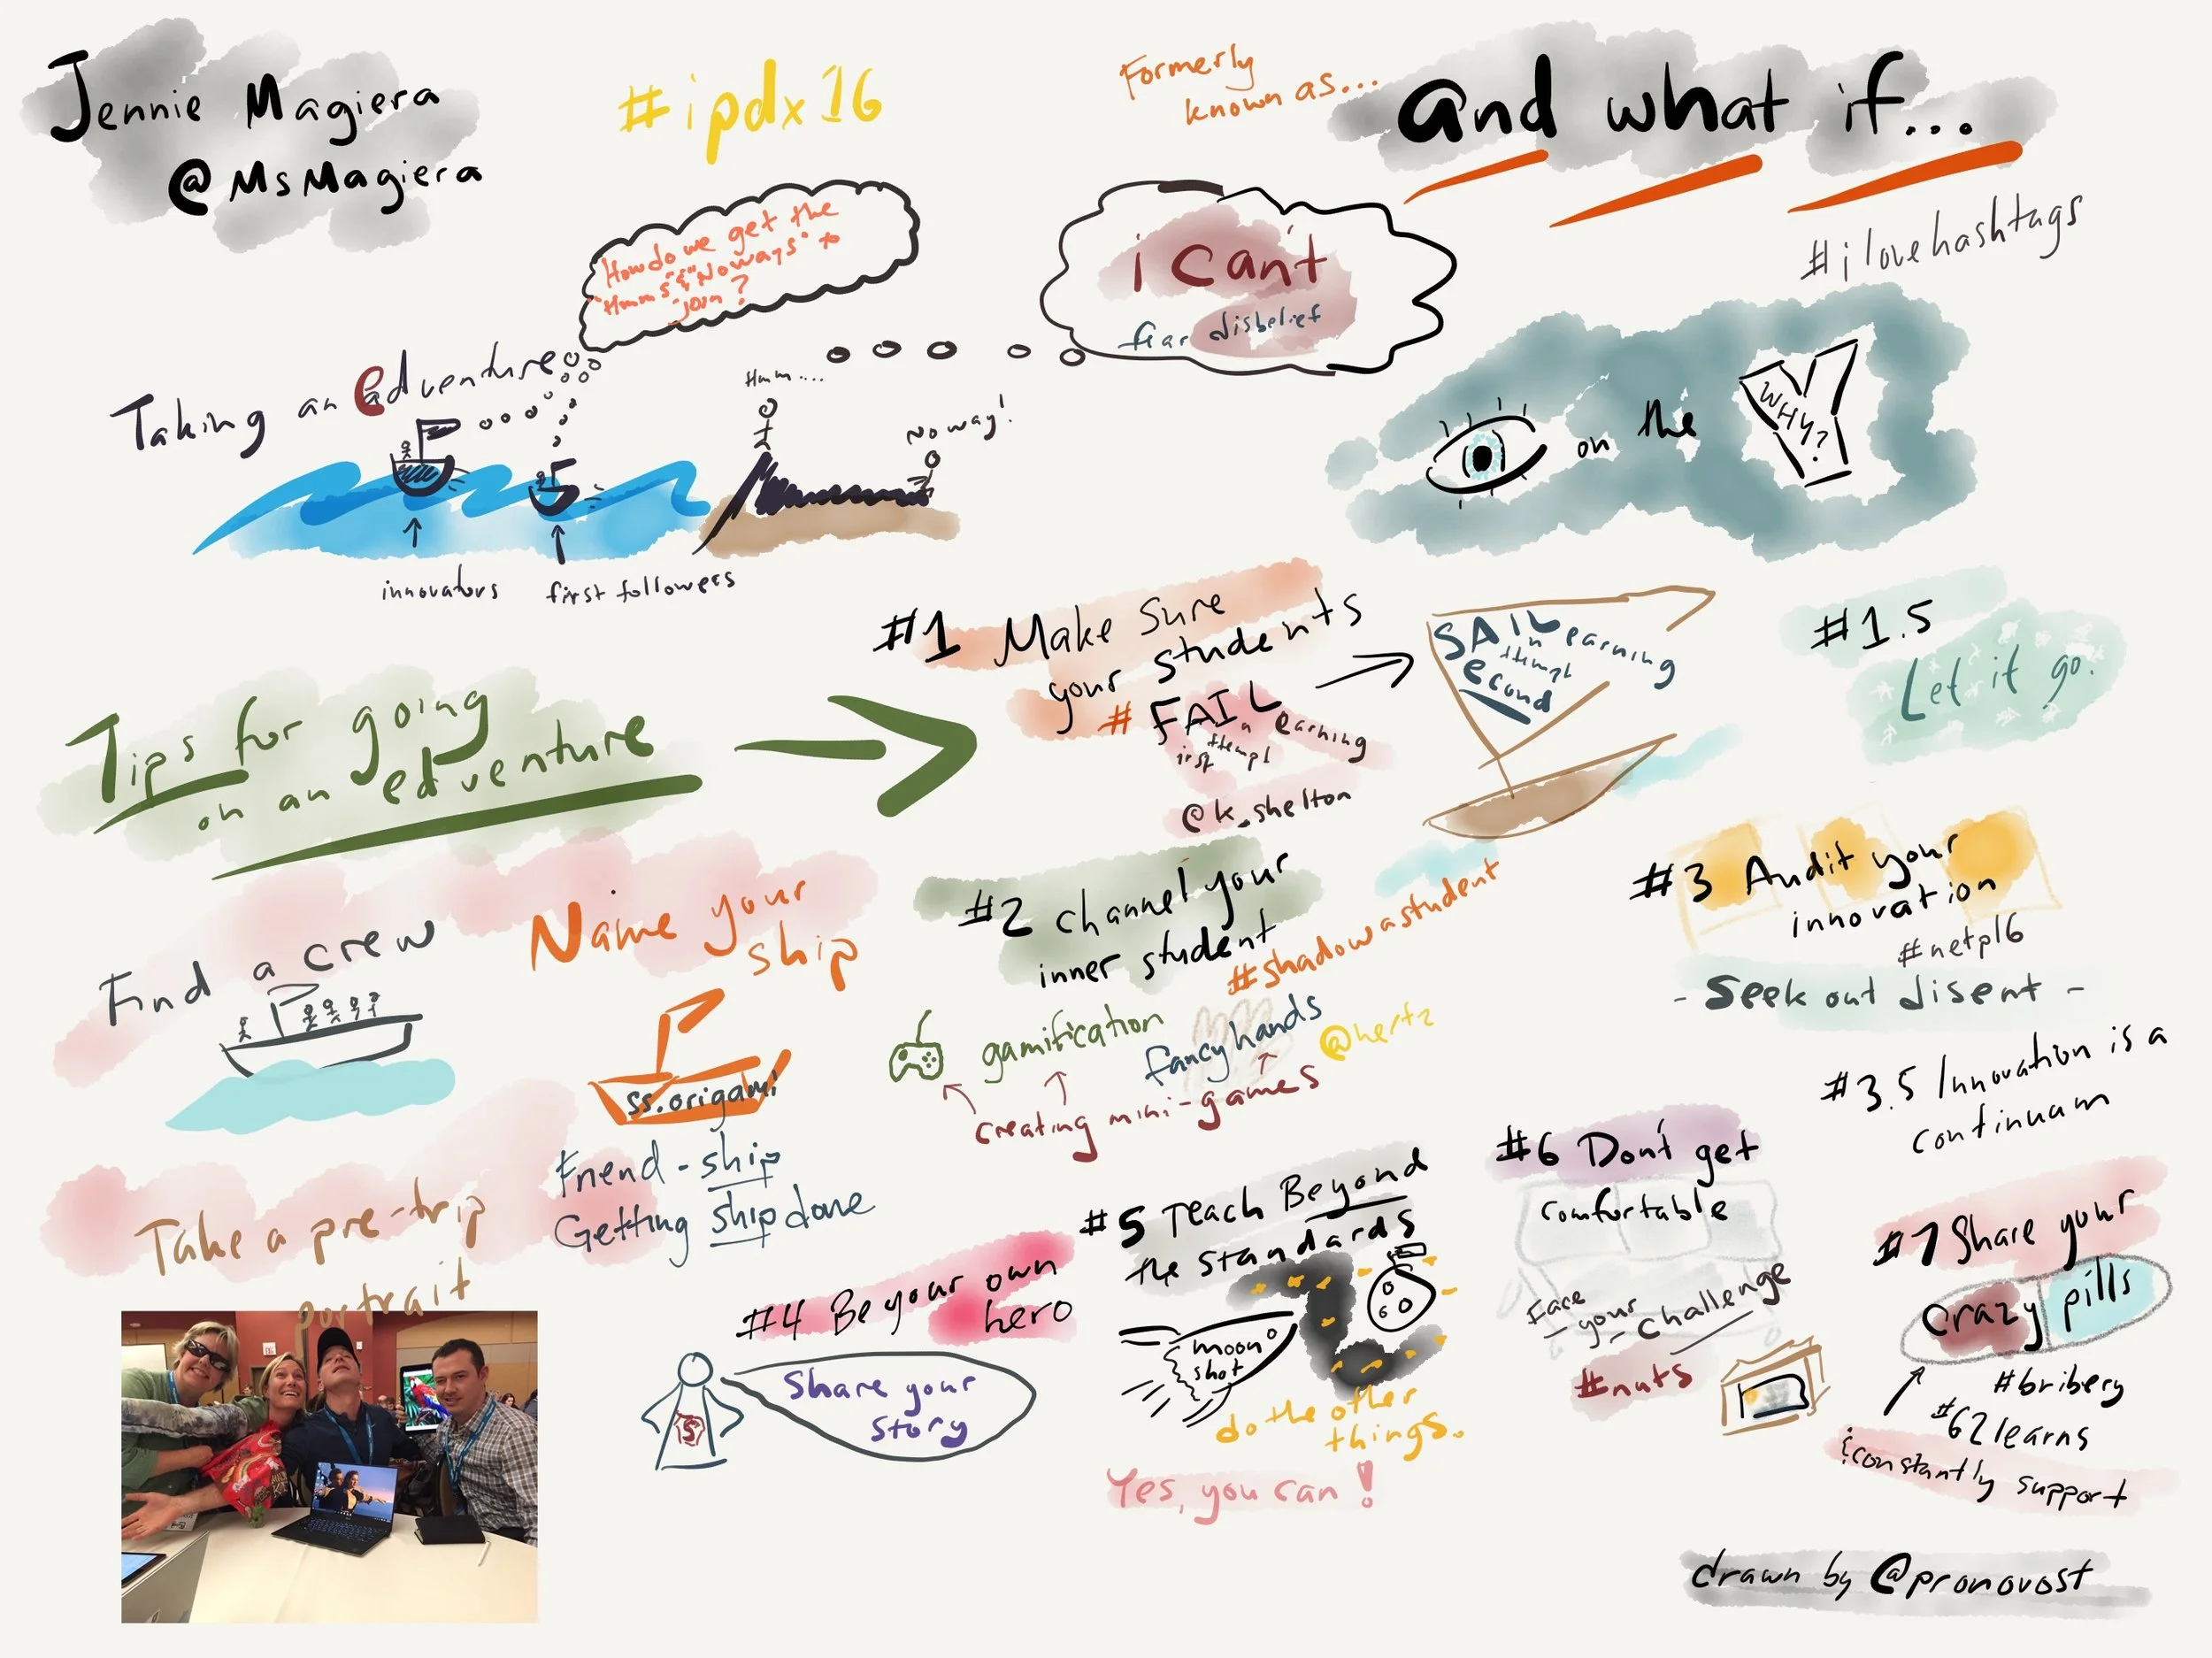 Jennie Magiera
@MsMagiera
#ipdx16
Formerly
known as...
and what if...
#ilovehashtags
How do we get the
"Hmms" & "No ways" to
join?
i can't
fear disbelief
Taking an edventure
Hmm....
No way!
innovators
first followers
on the
WHY?
Tips for going
on an edventure
#1 Make Sure
your students
# FAIL
irst ttempt n earning
@k_shelton
SAIL
econd ttempt in earning
#1.5
Let it go.
Find a crew
Name your
ship
ss.origami
Friend-ship
Getting ship done
Take a pre-trip
portrait
#2 channel your
inner student
#shadowastudent
gamification
fancyhands
@hertz
creating mini-games
#3 Audit your
innovation
#netp16
- Seek out disent -
#3.5 Innovation is a
continuam
#4 Be your own
hero
S
Share your
story
#5 Teach Beyond
the standards
moon
shot
do the other
things.
Yes, you can!
#6 Don't get
comfortable
Face
your
challenge
#nuts
#7 Share your
crazy pills
#bribery
#62learns
& constantly support
drawn by @pronovost